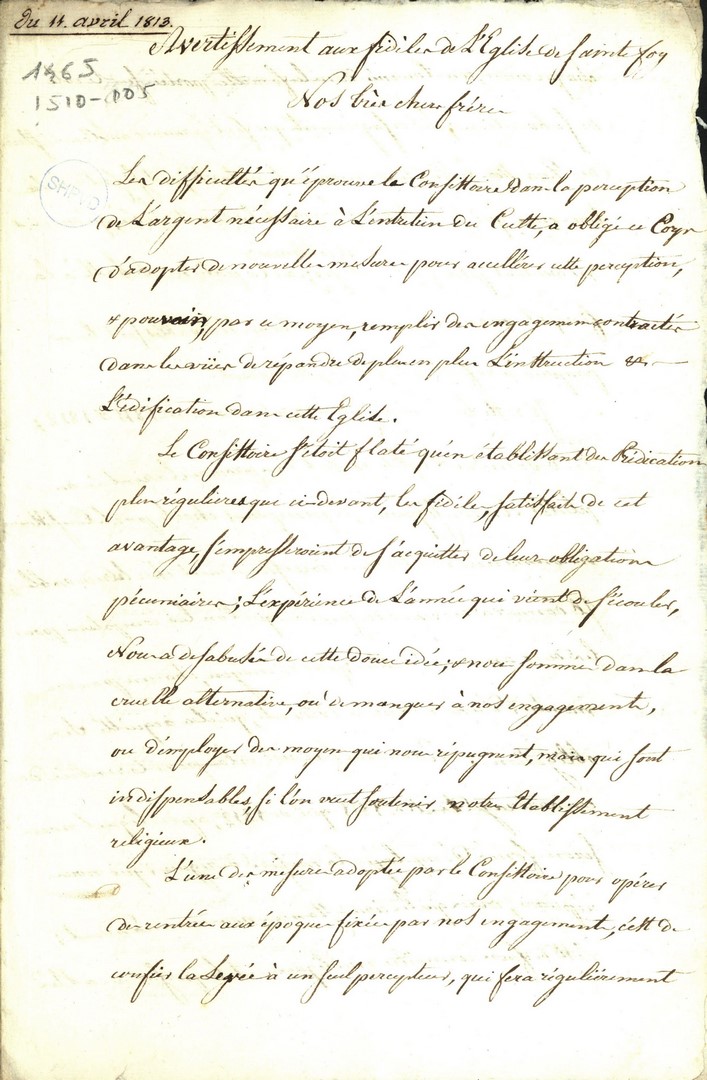 Du 14. avril 1813.
Avertissement aux fidèles de L'Eglise de Sainte foy
1465
1510-005
Nos très chers frères
SHPVD
Les difficultés qu'éprouve le Consistoire dans la perception
de L'argent nécessaire à L'entretien du Culte, a obligé ce Corps
d'adopter de nouvelles mesures pour accellérer cette perception,
& pouvoir, par ce moyen, remplir des engagemens contractés
dans les vües de répandre de plus en plus L'instruction &
L'édification dans cette Eglise.
Le Consistoire S'étoit flaté qu'en établissant des Prédications
plus régulieres que ci-devant, les fidèles, satisfaits de cet
avantage, S'empresseroient de S'acquitter de leurs obligations
pécuniaires; L'expérience de L'année qui vient de S'écouler,
Nous a desabusés de cette douce idée; & nous sommes dans la
cruelle alternative, ou de manquer à nos engagements,
ou d'employer des moyens qui nous répugnent, mais qui sont
indispensables, si l'on veut soutenir notre Etablissement
religieux.
L'une des mesures adoptées par le Consistoire pour opérer
des rentrées aux époques fixées par nos engagements, c'est de
confier la Levée à un seul percepteur, qui fera régulièrement